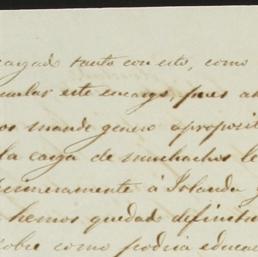 cargado tanto con esto, como
cular este encargo, pues a
os mande género a proposi
la carga de muchachos le
primeramente á Iolanda
hemos quedad difiniti
sobre como podria educa